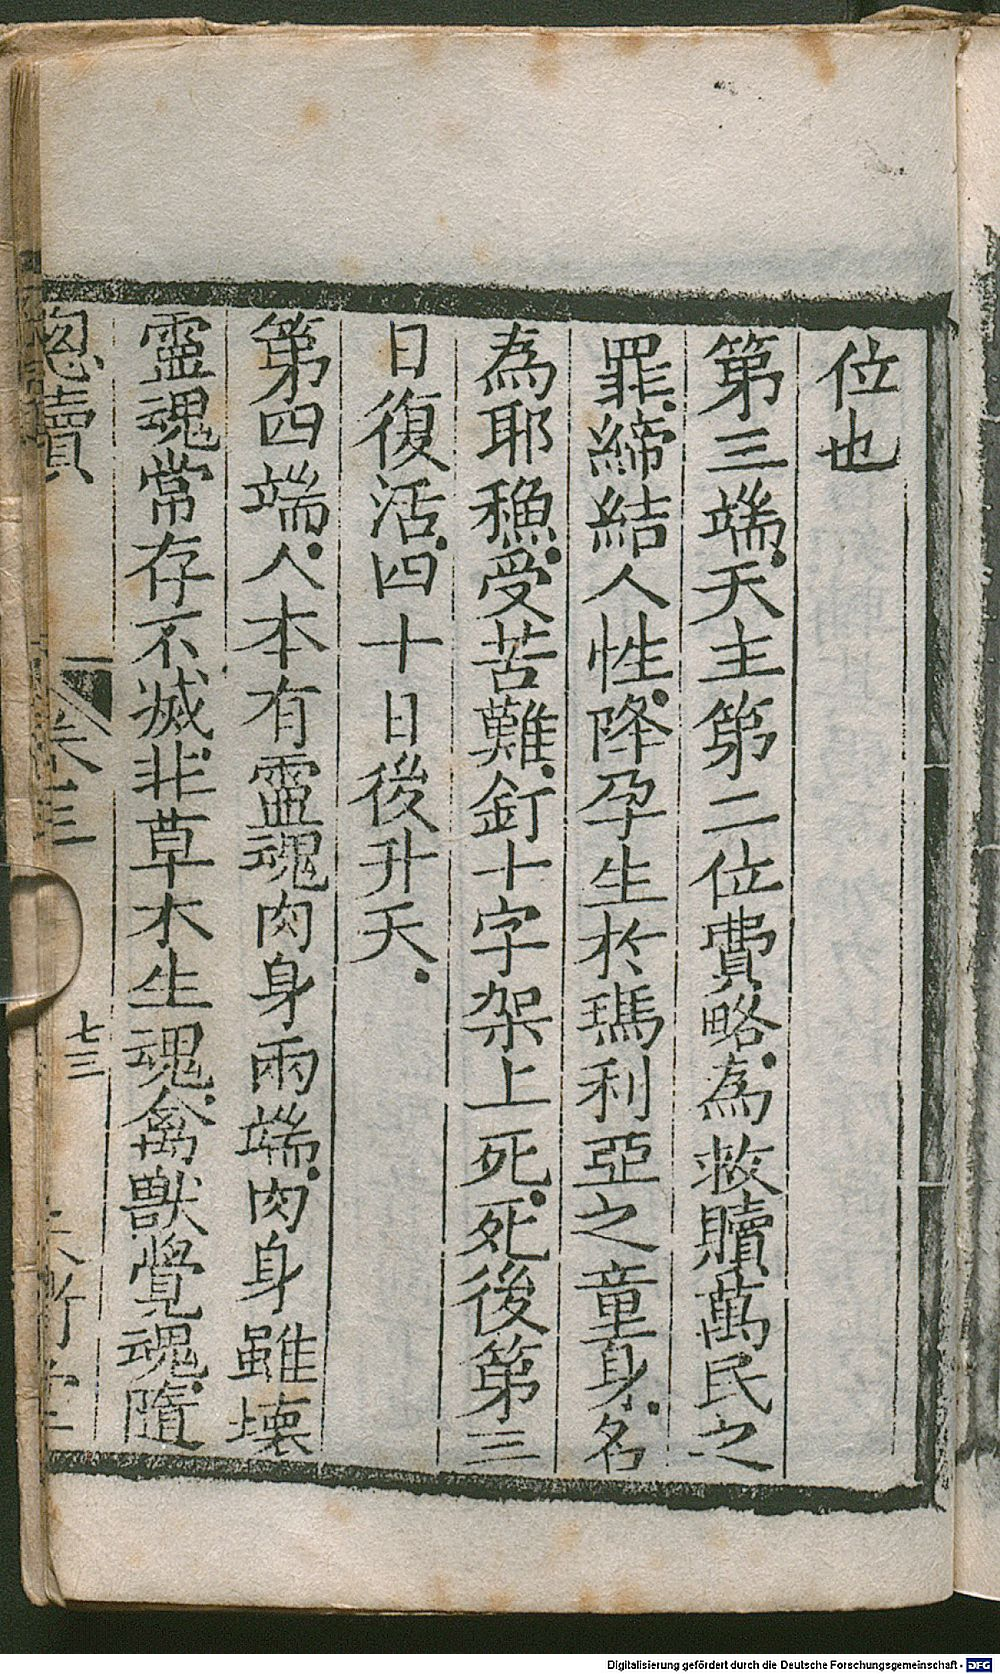 位也
第三端.天主第二位費略.為救贖萬民之
罪.締結人性.降孕生於瑪利亞之童身.名
為耶穌.受苦難.釘十字架上死.死後第三
日復活.四十日後升天.
第四端.人本有靈魂肉身兩端.肉身雖壞
靈魂常存不滅.非草木生魂.禽獸覺魂.隨
卷三
七三
Digitalisierung gefördert durch die Deutsche Forschungsgemeinschaft - DFG